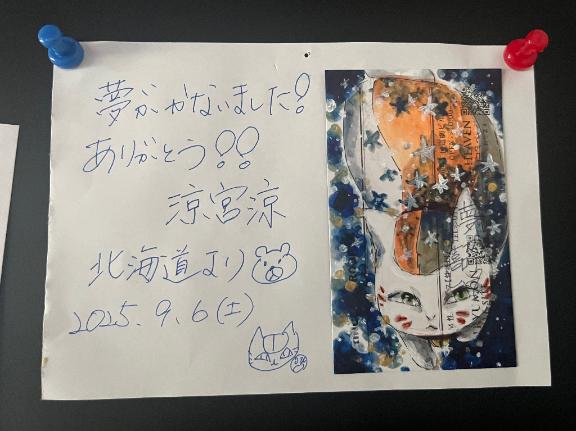 夢がかないました!
ありがとう!!
涼宮涼
北海道より
2025.9.6(土)
HEAVEN